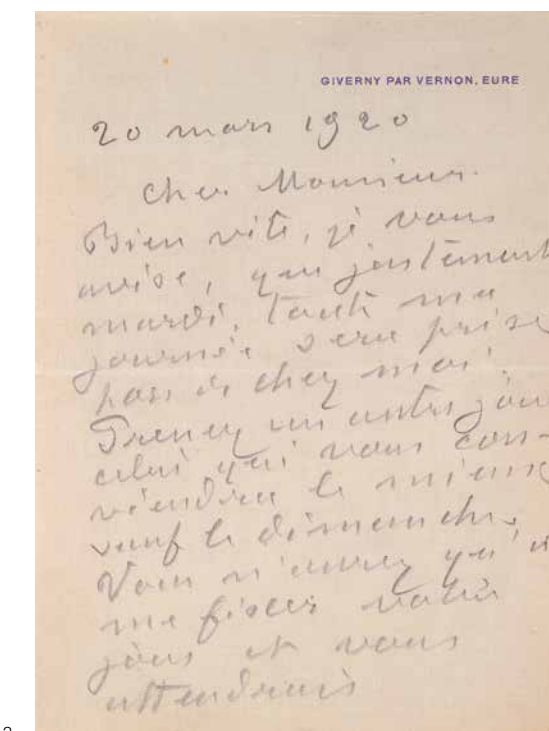 GIVERNY PAR VERNON, EURE
20 mars 1920
Cher Monsieur.
Bien vite, je vous
avise, que justement
mardi, toute ma
journée sera prise
hors de chez moi.
Prenez un autre jour
celui qui vous con-
viendra le mieux
sauf le dimanche.
Vous n'aurez qu'à
me fixer votre
jour et vous
attendrais